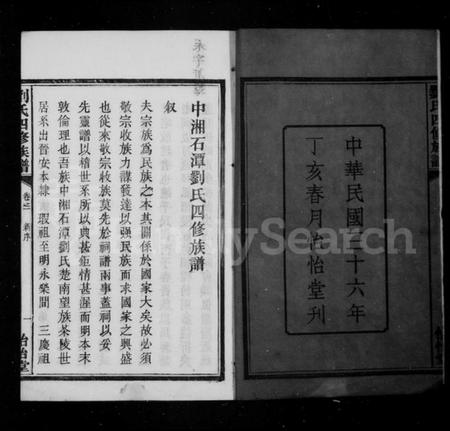 劉氏四修族譜
中華民國三十六年
丁亥春月怡怡堂刊
中湘石潭劉氏四修族譜
叙
夫宗族為民族之本其關係於國家大矣故必須
敬宗收族力謀發達以強民族而求國家之興盛
也從來敬宗收族莫先於祠譜兩事蓋祠以妥
先靈譜以稽世系所以典甚鉅情甚渥而明本末
敦倫理也吾族中湘石潭劉氏楚南望族茶陵世
居系出晉安本隸 瑕祖至明永樂間 三慶祖
劉氏四修族譜
卷之
序
一
怡怡堂
FamilySearch